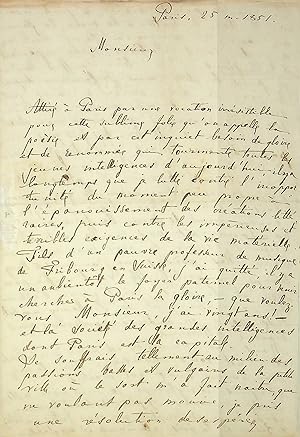 Paris, 25 m. 1851.
Monsieur
Attiré à Paris par une vocation irrésistible
pour cette sublime folie qu'on appelle la
poésie et par cet inquiet besoin de gloire
et de renommée qui tourmente toutes les
jeunes intelligences d'aujourd'hui, il y a
longtemps que je lutte contre l'inoppor
tunité du moment peu propre à
l'épanouissement des vocations litté
raires, puis contre les impérieuses et
terribles exigences de la vie matérielle.
Fils d'un pauvre professeur de musique
de Fribourg en Suisse, j'ai quitté, il y a
un an bientôt le foyer paternel pour venir
chercher à Paris la gloire, - que voulez
vous Monsieur, j'ai vingt ans! -
et la société des grandes intelligences
dont Paris est la capitale.
Je souffrais tellement au milieu des
passions basses et vulgaires de la petite
ville où le sort m'a fait naître, que
ne voulant pas mourir, je pris
une résolution désespérée